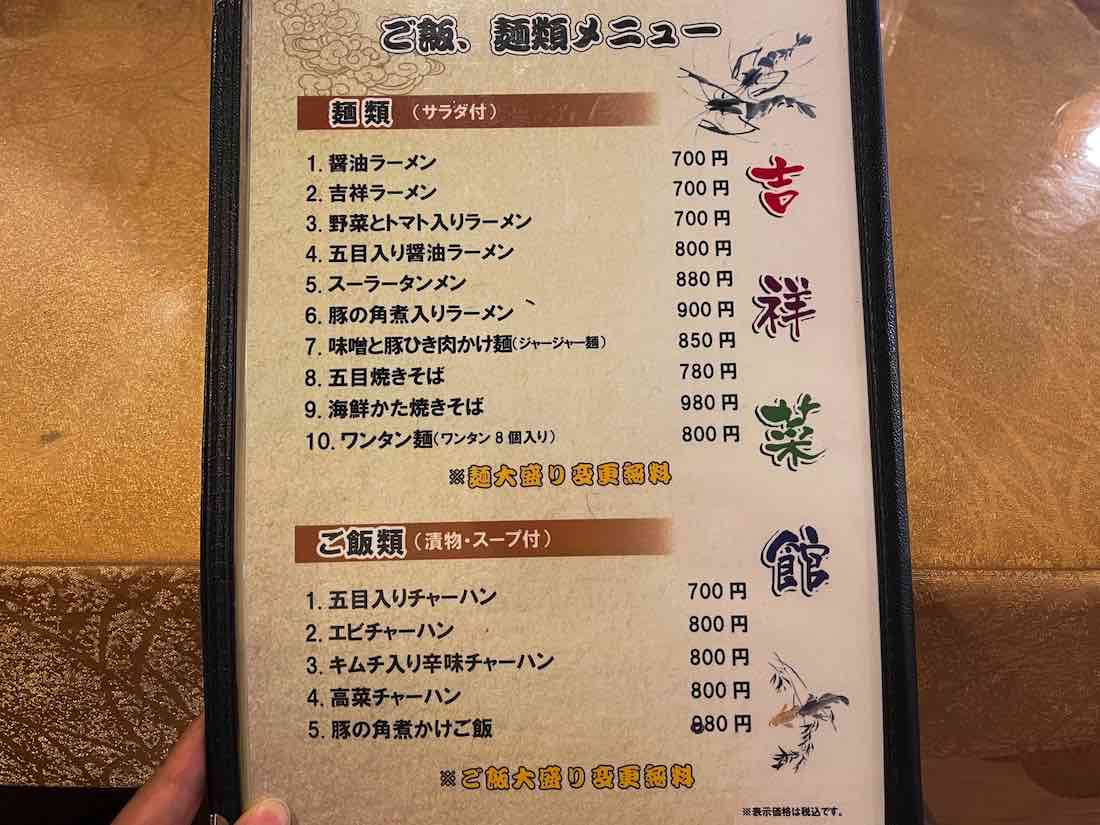 ご飯、麺類メニュー
麺類（サラダ付）
1. 醤油ラーメン 700円
2. 吉祥ラーメン 700円
3. 野菜とトマト入りラーメン 700円
4. 五目入り醤油ラーメン 800円
5. スーラータンメン 880円
6. 豚の角煮入りラーメン 900円
7. 味噌と豚ひき肉かけ麺(ジャージャー麺) 850円
8. 五目焼きそば 780円
9. 海鮮かた焼きそば 980円
10. ワンタン麺(ワンタン8個入り) 800円
※麺大盛り変更無料
ご飯類（漬物・スープ付）
1. 五目入りチャーハン 700円
2. エビチャーハン 800円
3. キムチ入り辛味チャーハン 800円
4. 高菜チャーハン 800円
5. 豚の角煮かけご飯 880円
※ご飯大盛り変更無料
吉祥菜館
※表示価格は税込です。